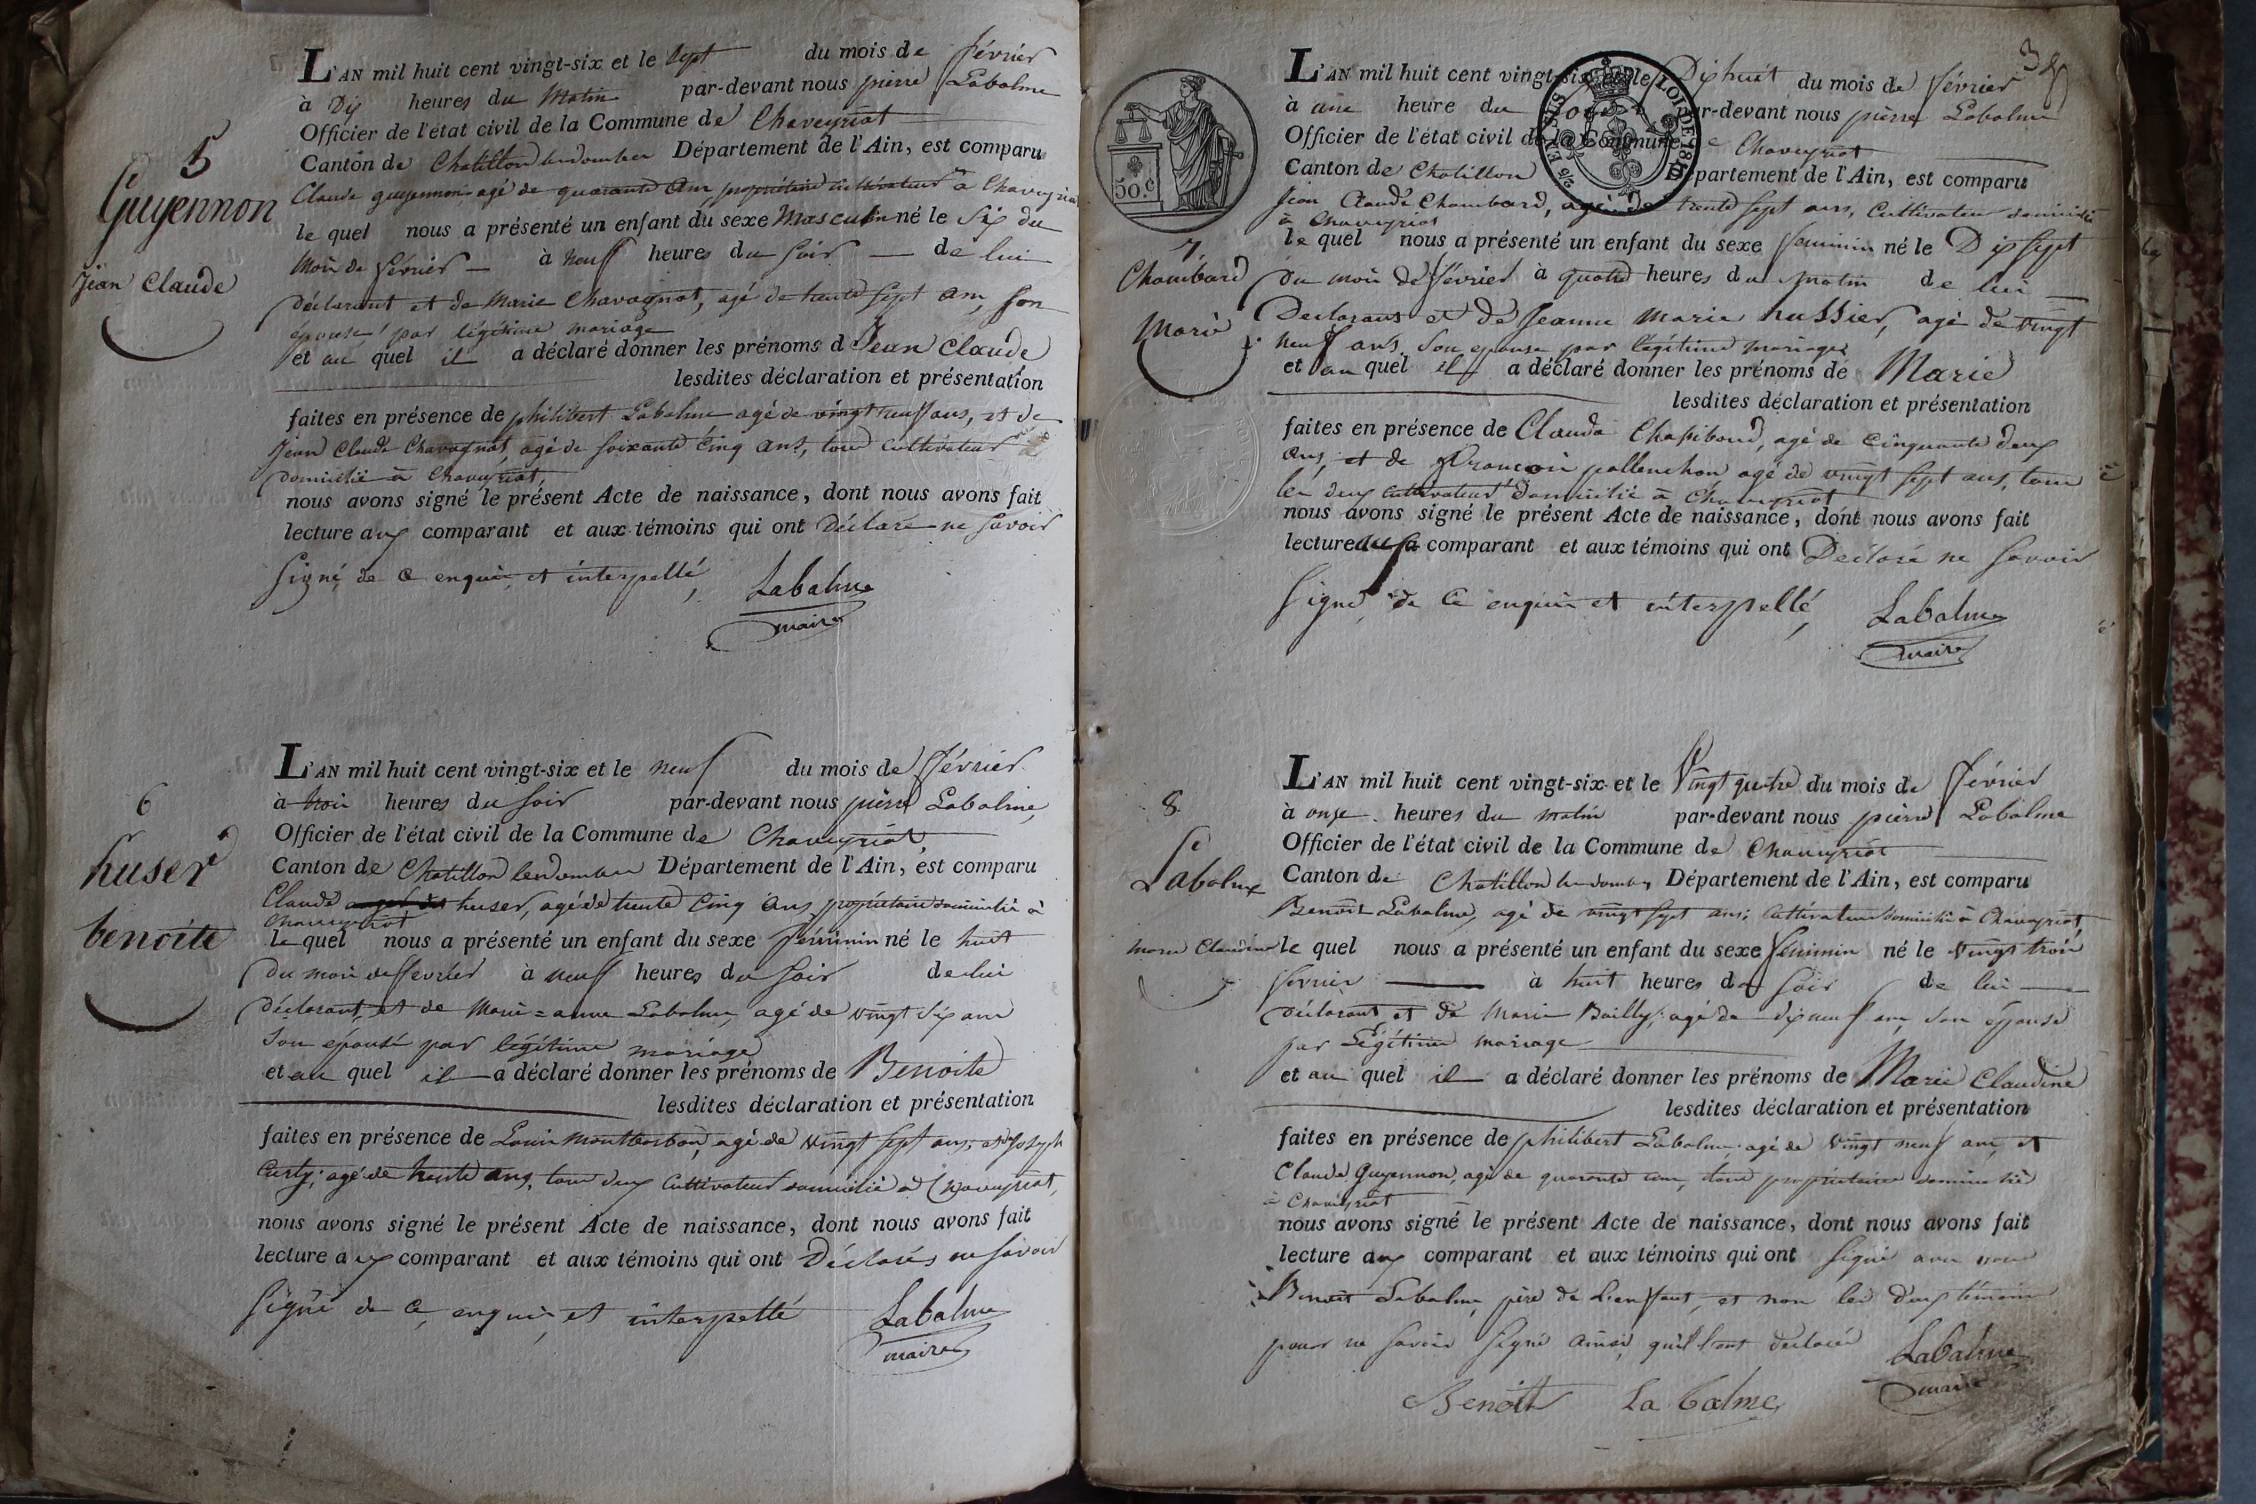 5
Guyennon
Jean Claude
L'AN mil huit cent vingt-six et le Sept du mois de février
à Dix heures du Matin par-devant nous pierre Labalme
Officier de l'état civil de la Commune de Chaveyriat
Canton de Chatillon lesdombes Département de l'Ain, est comparu
Claude guyennon agé de quarante ans, propriétaire cultivateur à Chaveyriat
le quel nous a présenté un enfant du sexe Masculin né le Six du
Mois de février à neuf heures du Soir de lui
déclarant et de Marie Chavagnat, agé de trente Sept ans, Son
épouse par légitime mariage
et au quel il a déclaré donner les prénoms d Jean Claude
lesdites déclaration et présentation
faites en présence de philibert Labalme agé de vingt neuf ans, et de
Jean Claude Chavagnat, agé de Soixante Cinq ans, tous cultivateur
domicilié à Chaveyriat,
nous avons signé le présent Acte de naissance, dont nous avons fait
lecture aux comparant et aux témoins qui ont Déclaré ne Savoir
Signé, de ce enquis, et interpellé, Labalme
maire
6
huser
benoite
L'AN mil huit cent vingt-six et le neuf du mois de février
à trois heures du Soir par-devant nous pierre Labalme,
Officier de l'état civil de la Commune de Chaveyriat,
Canton de Chatillon lesdombes Département de l'Ain, est comparu
Claude huser, agé de trente Cinq ans, propriétaire domicilié à
Chaveyriat
le quel nous a présenté un enfant du sexe féminin né le huit
du mois de février à neuf heures du Soir de lui
déclarant, et de Marie=anne Labalme, agé de vingt Six ans
Son épouse par légitime mariage
et au quel il a déclaré donner les prénoms de Benoite
lesdites déclaration et présentation
faites en présence de Louis Montbarbon, agé de vingt Sept ans, et Joseph
Curty, agé de trente ans, tous deux Cultivateur domicilié à Chaveyriat,
nous avons signé le présent Acte de naissance, dont nous avons fait
lecture aux comparant et aux témoins qui ont Déclarés ne Savoir
Signé de ce, enquis, et interpellé Labalme
maire
38
LOI DE 1816
50.c
7
Chambard
Marie
L'AN mil huit cent vingt-six et le Dix huit du mois de février
à une heure du Soir par-devant nous pierre Labalme
Officier de l'état civil de la Commune de Chaveyriat
Canton de Chatillon Département de l'Ain, est comparu
Jean Claude Chambard, agé de trente Sept ans, Cultivateur domicilié
à Chaveyriat
le quel nous a présenté un enfant du sexe féminin né le Dix Sept
du mois de février à quatre heures du matin de lui
Déclarant et de Jeanne Marie hussier, agé de vingt
neuf ans, Son epouse par légitime mariage
et au quel il a déclaré donner les prénoms de Marie
lesdites déclaration et présentation
faites en présence de Claude agé de Cinquante deux
ans, et de François pallenchon agé de vingt Sept ans, tous
les deux cultivateur Domicilié à Chaveyriat
nous avons signé le présent Acte de naissance, dont nous avons fait
lecture comparant et aux témoins qui ont Declaré ne Savoir
Signé, de ce enquis et interpellé, Labalme
maire
8
Labalme
marie Claudine
L'AN mil huit cent vingt-six et le Vingt quatre du mois de février
à onze heures du matin par-devant nous pierre Labalme
Officier de l'état civil de la Commune de Chaveyriat
Canton de Chatillon lesdombes Département de l'Ain, est comparu
Benoit Labalme, agé de vingt Sept ans, Cultivateur domicilié à Chaveyriat,
le quel nous a présenté un enfant du sexe féminin né le vingt trois
fevrier à huit heures du Soir de lui
Déclarant et de Marie Bailly, agé de dix neuf ans, Son épouse
par Légitime mariage
et au quel il a déclaré donner les prénoms de Marie Claudine
lesdites déclaration et présentation
faites en présence de philibert Labalme, agé de vingt neuf ans, et
Claude Guyennon, agé de quarante ans, tous propriétaires domicilié
à Chaveyriat
nous avons signé le présent Acte de naissance, dont nous avons fait
lecture aux comparant et aux témoins qui ont Signé avec nous
Benoit Labalme, père de L'enffant, et non les deux témoins
pour ne Savoir Signé ainsi qu'il l'ont déclaré Labalme
maire
Benoit La balme